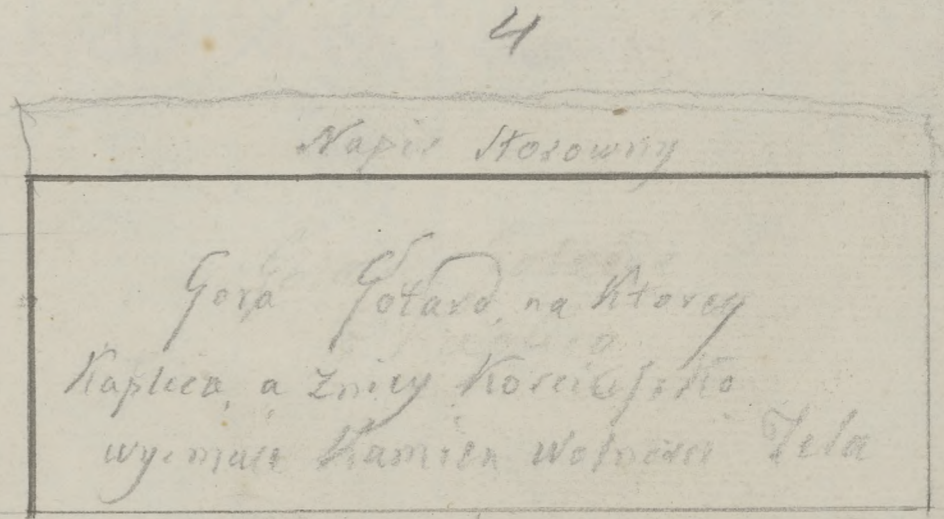 4
Napis Stosowny
Gora Gotard, na Ktorey
Kaplica, a Zniey Kosciuszko
wyimuie Kamien Wolnosci Tela